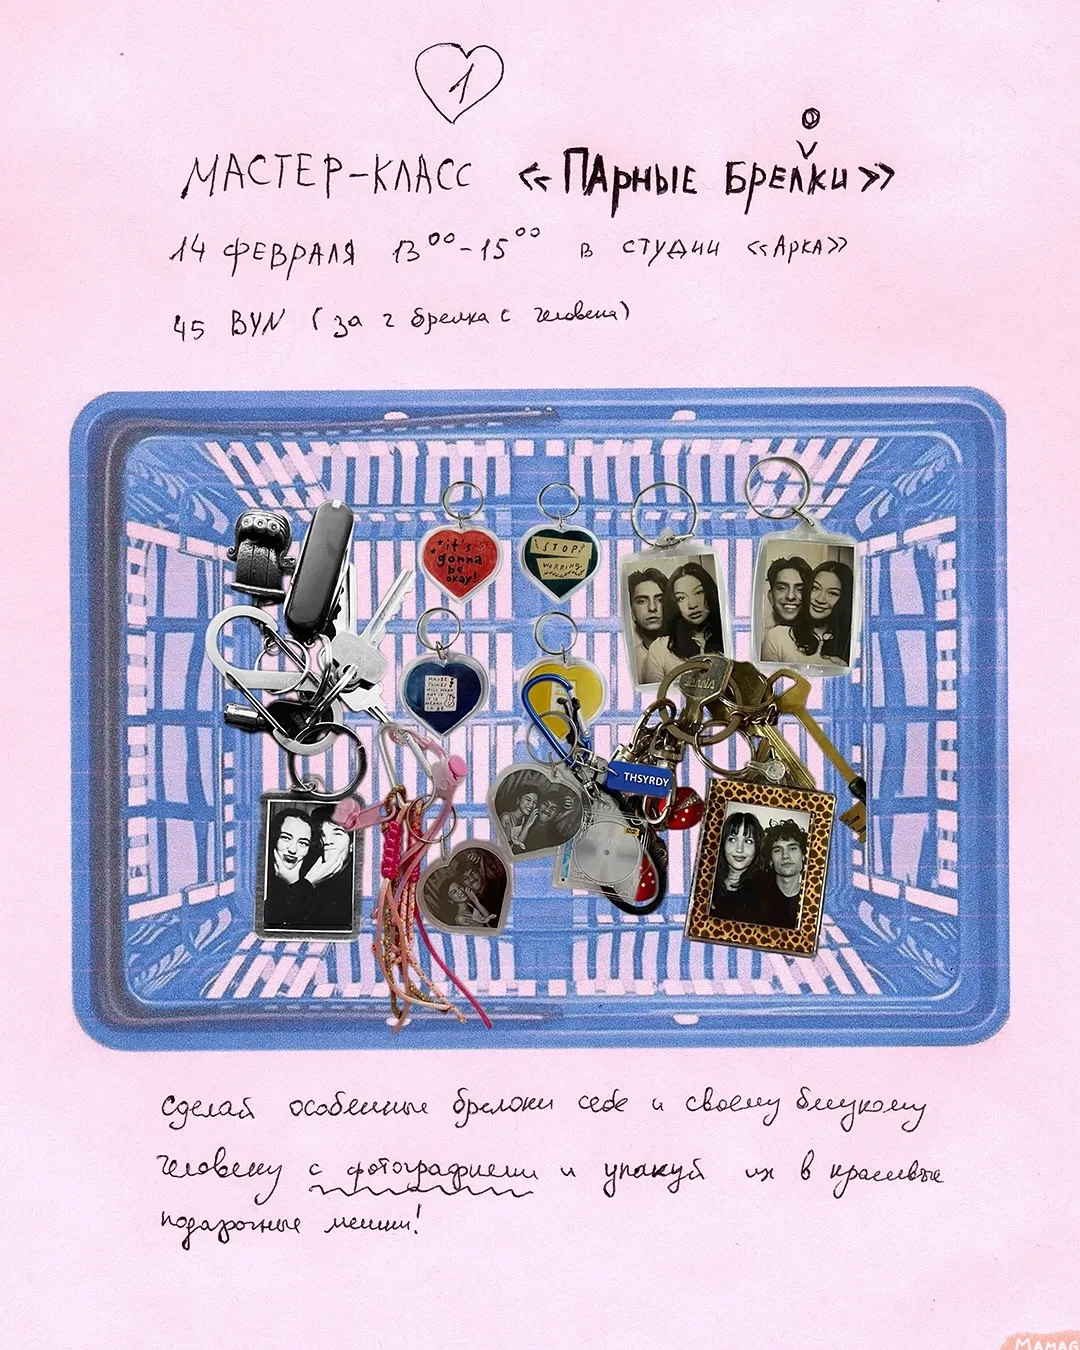 1
МАСТЕР-КЛАСС «ПАРНЫЕ БРЕЛОКИ»
14 ФЕВРАЛЯ 13 00 - 15 00 в СТУДИИ «АРКА»
45 BYN (за 2 брелка с человека)
it's
gonna
be
okay!
STOP!
WORRING
MAYBE
THINGS
WILL WORK
OUT
THSYRDY
сделай особенные брелоки себе и своему близкому
человеку с фотографиями и упакуй их в красивые
подарочные мешки!
MAMAG